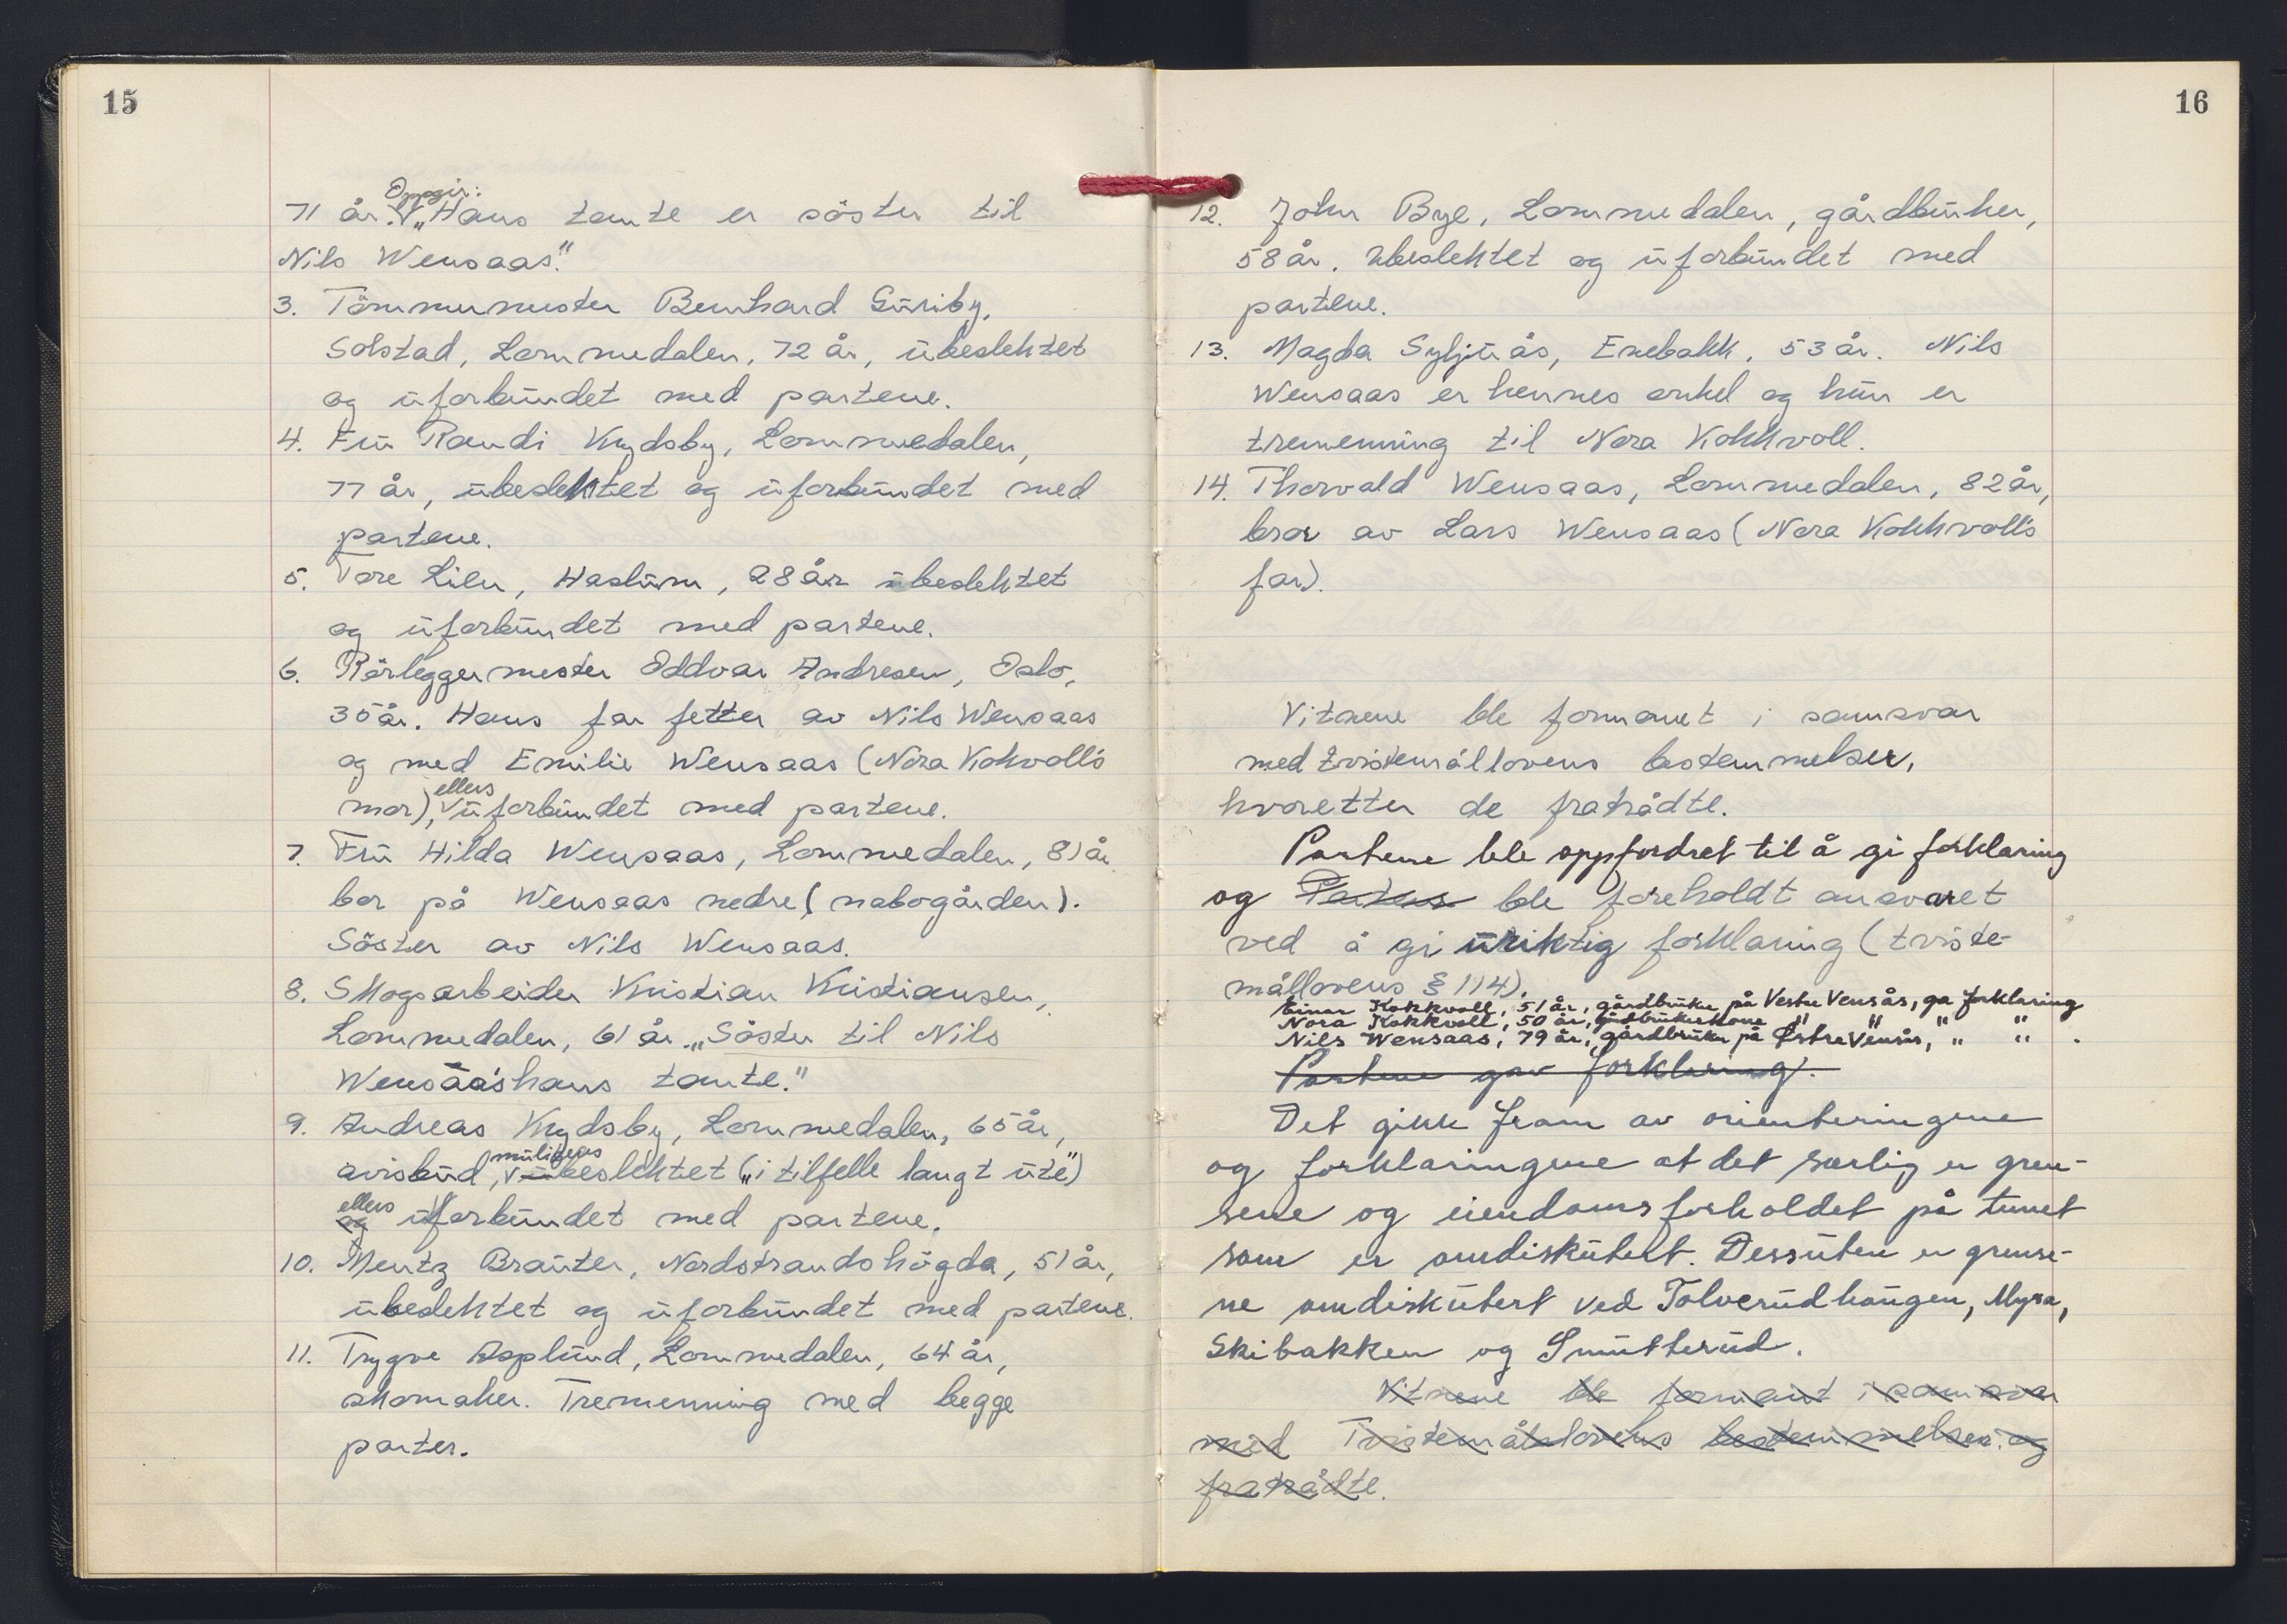 15
Oppgir:
71 år. V „Hans tante er söster til
Nils Wensaas."
3. Tömmermester Bernhard Guriby,
Solstad, Lommedalen, 72 år, ubeslektet
og uforbundet med partene.
4. Fru Randi Krydsby, Lommedalen,
77 år, ubeslektet og uforbundet med
partene.
5. Tore Lilu, Haslum, 28 år ubeslektet
og uforbundet med partene.
6. Rörleggermester Oddvar Andresen, Oslo,
35 år. Hans far fetter av Nils Wensaas
og med Emilie Wensaas (Nora Kokvoll's
ellers
mor), V uforbundet med partene.
7. Fru Hilda Wensaas, Lommedalen, 81 år
bor på Wensaas nedre (nabogården).
Söster av Nils Wensaas.
8. Skogsarbeider Kristian Kristiansen,
Lommedalen, 61 år. „Söster til Nils
Wensaas hans tante."
9. Andreas Krydsby, Lommedalen, 65 år,
muligens
avisbud, V ubeslektet („i tilfelle langt ute")
ellers
og uforbundet med partene.
10. Mentz Brauter, Nordstrandshögda, 51 år,
ubeslektet og uforbundet med partene.
11. Trygve Asplund, Lommedalen, 64 år,
skomaker. Tremenning med begge
parter.
16
12. John Bye, Lommedalen, gårdbruker,
58 år. Ubeslektet og uforbundet med
partene.
13. Magda Syljuås, Enebakk, 53 år. Nils
Wensaas er hennes onkel og hun er
tremenning til Nora Kokkvoll.
14. Thorvald Wensaas, Lommedalen, 82 år,
bror av Lars Wensaas (Nora Kokkvoll's
far).
Vitnene ble formanet i samsvar
med tvistemållovens bestemmelser,
hvoretter de fratrådte.
Partene ble oppfordret til å gi forklaring
og Partene ble foreholdt ansvaret
ved å gi uriktig forklaring (tviste-
mållovens § 114).
Einar Kokkvoll, 51 år, gårdbruker på Vestre Vensås, ga forklaring
Nora Kokkvoll, 50 år, gårdbrukerkone " " " "
Nils Wensaas, 79 år, gårdbruker på Østre Vensås, " " .
Partene gav forklaring.
Det gikk fram av orienteringene
og forklaringene at det særlig er gren-
sene og eiendomsforholdet på tunet
som er omdiskutert. Dessuten er grense-
ne omdiskutert ved Tolverudhaugen, Myra,
Skibakken og Smutterud.
Vitnene ble formant i samsvar
med Tvistemålslovens bestemmelser og
fratrådte.